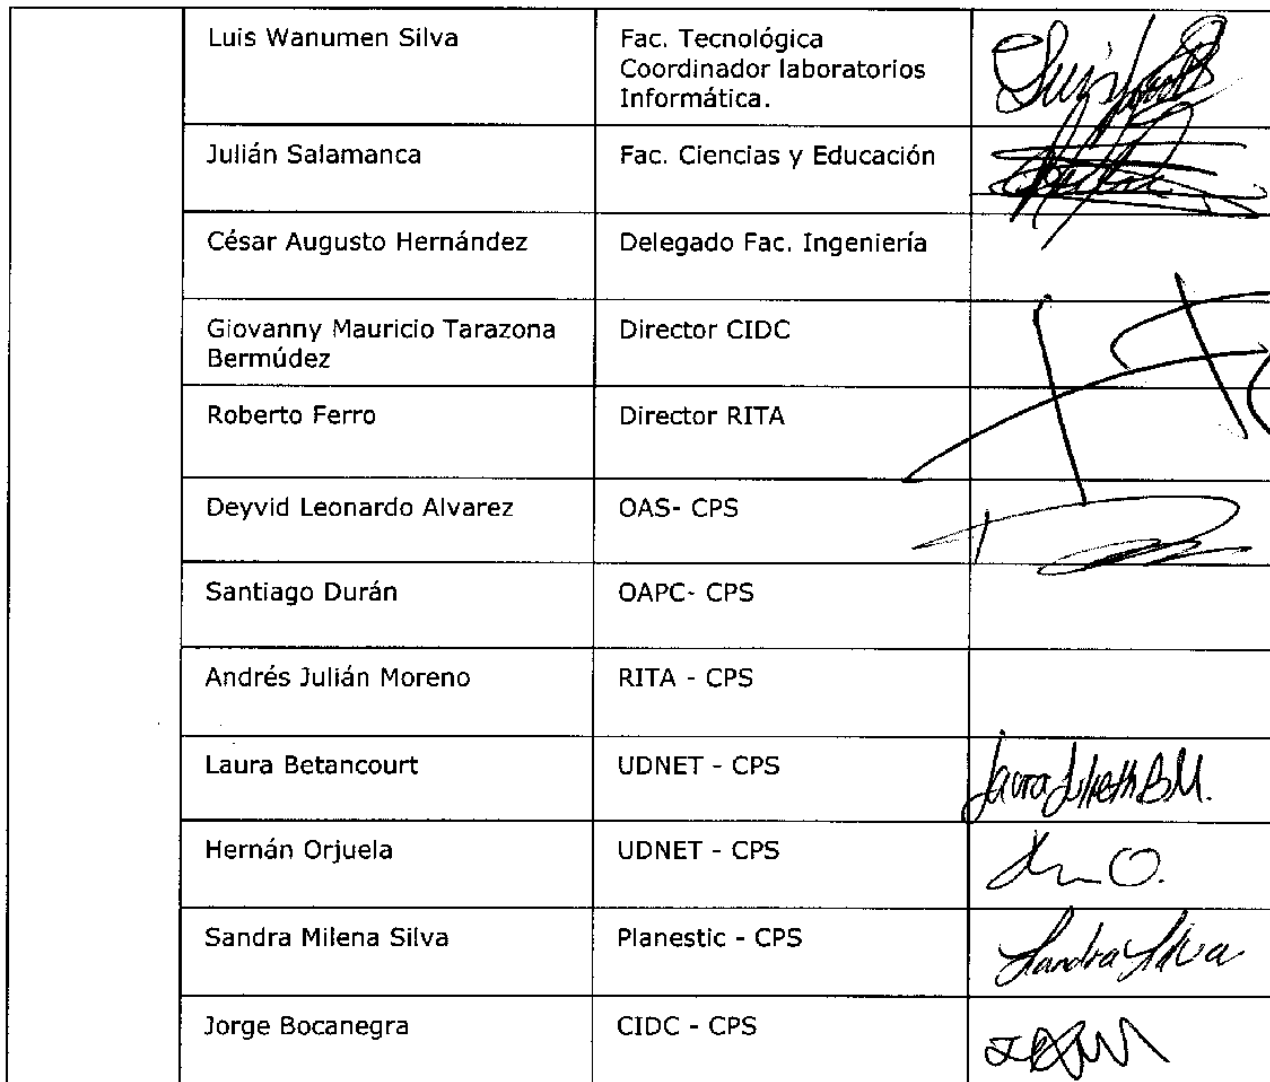 Luis Wanumen Silva
Fac. Tecnológica
Coordinador laboratorios
Informática.
Julián Salamanca
Fac. Ciencias y Educación
César Augusto Hernández
Delegado Fac. Ingeniería
Giovanny Mauricio Tarazona
Bermúdez
Director CIDC
Roberto Ferro
Director RITA
Deyvid Leonardo Alvarez
OAS- CPS
Santiago Durán
OAPC- CPS
Andrés Julián Moreno
RITA - CPS
Laura Betancourt
UDNET - CPS
Laura Julieth B M.
Hernán Orjuela
UDNET - CPS
Sandra Milena Silva
Planestic - CPS
Sandra Silva
Jorge Bocanegra
CIDC - CPS